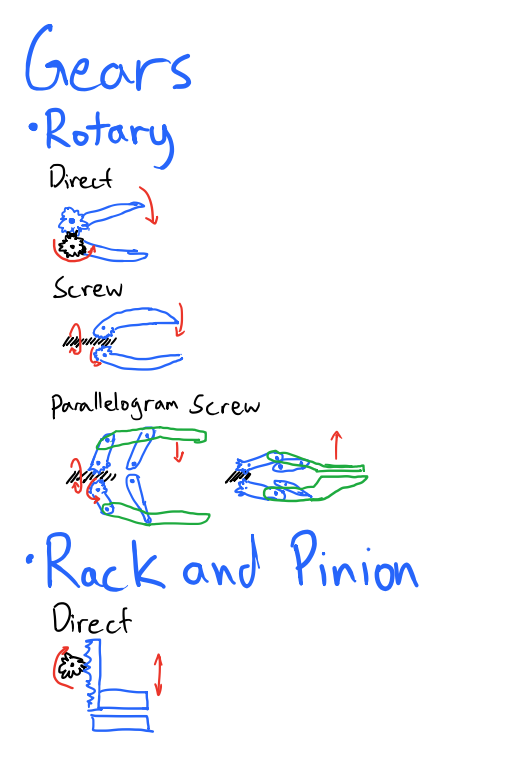 Gears
•Rotary
Direct
Screw
Parallelogram Screw
•Rack and Pinion
Direct